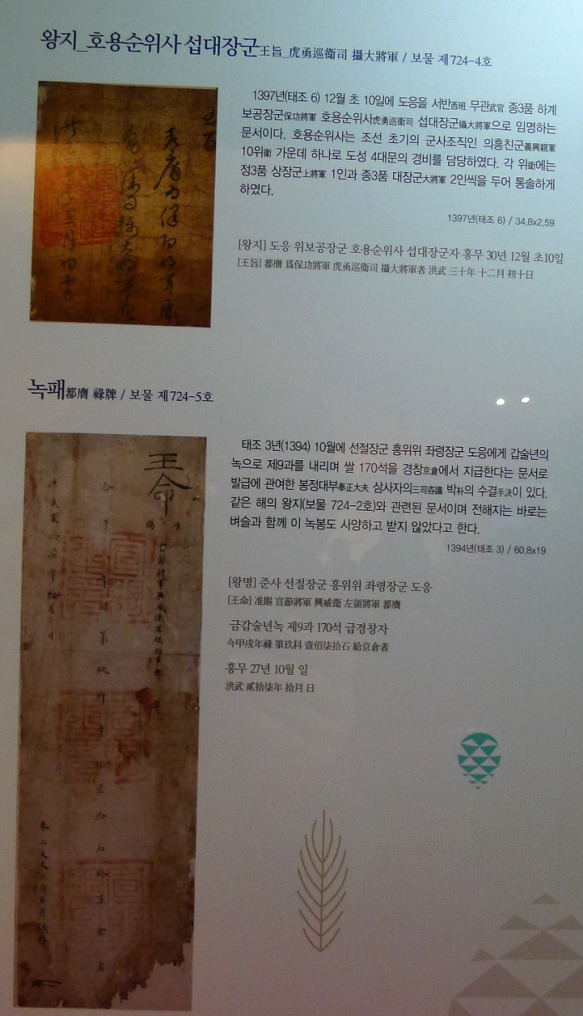 왕지_호용순위사 섭대장군王旨_虎勇巡衛司 攝大將軍 / 보물 제724-4호
1397년(태조 6) 12월 초 10일에 도응을 서반西班 무관武官 종3품 하계
보공장군保功將軍 호용순위사虎勇巡衛司 섭대장군攝大將軍으로 임명하는
문서이다. 호용순위사는 조선 초기의 군사조직인 의흥친군義興親軍
10위衛 가운데 하나로 도성 4대문의 경비를 담당하였다. 각 위衛에는
정3품 상장군上將軍 1인과 종3품 대장군大將軍 2인씩을 두어 통솔하게
하였다.
1397년(태조 6) / 34.8x2.59
[왕지] 도응 위보공장군 호용순위사 섭대장군자 홍무 30년 12월 초10일
[王旨] 都膺 爲保功將軍 虎勇巡衛司 攝大將軍者 洪武 三十年 十二月 初十日
王旨
녹패都膺 祿牌 / 보물 제724-5호
태조 3년(1394) 10월에 선절장군 흥위위 좌령장군 도응에게 갑술년의
녹으로 제9과를 내리며 쌀 170석을 경창京倉에서 지급한다는 문서로
발급에 관여한 봉정대부奉正大夫 삼사자의三司咨議 박朴의 수결手決이 있다.
같은 해의 왕지(보물 724-2호)와 관련된 문서이며 전해지는 바로는
벼슬과 함께 이 녹봉도 사양하고 받지 않았다고 한다.
1394년(태조 3) / 60.8x19
[왕명] 준사 선절장군 흥위위 좌령장군 도응
[王命] 准賜 宣節將軍 興威衛 左領將軍 都膺
금갑술년녹 제9과 170석 급경창자
今甲戌年祿 第玖科 壹佰柒拾石 給京倉者
홍무 27년 10월 일
洪武 貳拾柒年 拾月 日
王命